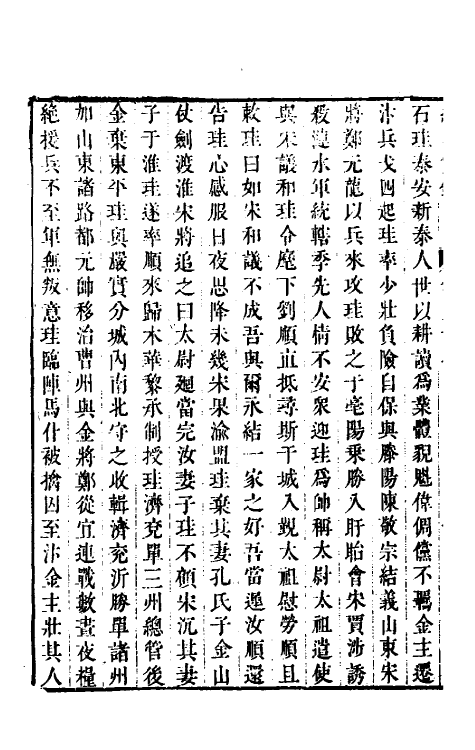 石珪泰安新泰人世以耕讀爲業體貌魁偉倜儻不羈金主遷
汴兵戈四起珪率少壯負險自保與滕陽陳敬宗結義山東宋
將鄭元龍以兵來攻珪敗之于亳陽乘勝入盱眙會宋賈涉誘
殺漣水軍統轄季先人情不安衆迎珪爲帥稱太尉太祖遣使
與宋議和珪令麾下劉順直抵尋斯干城入覲太祖慰勞順且
敕珪曰如宋和議不成吾與爾永結一家之好吾當遲汝順還
告珪心感服日夜思降未幾宋果渝盟珪棄其妻孔氏子金山
仗劍渡淮宋將追之曰太尉廻當完汝妻子珪不顧宋沉其妻
子于淮珪遂率順來歸木華黎承制授珪濟兗單三州總管後
金棄東平珪與嚴實分城內南北守之收輯濟兗沂滕單諸州
加山東諸路都元帥移治曹州與金將鄭從宜連戰數晝夜糧
絕援兵不至軍無叛意珪臨陣馬仆被擒囚至汴金主壯其人